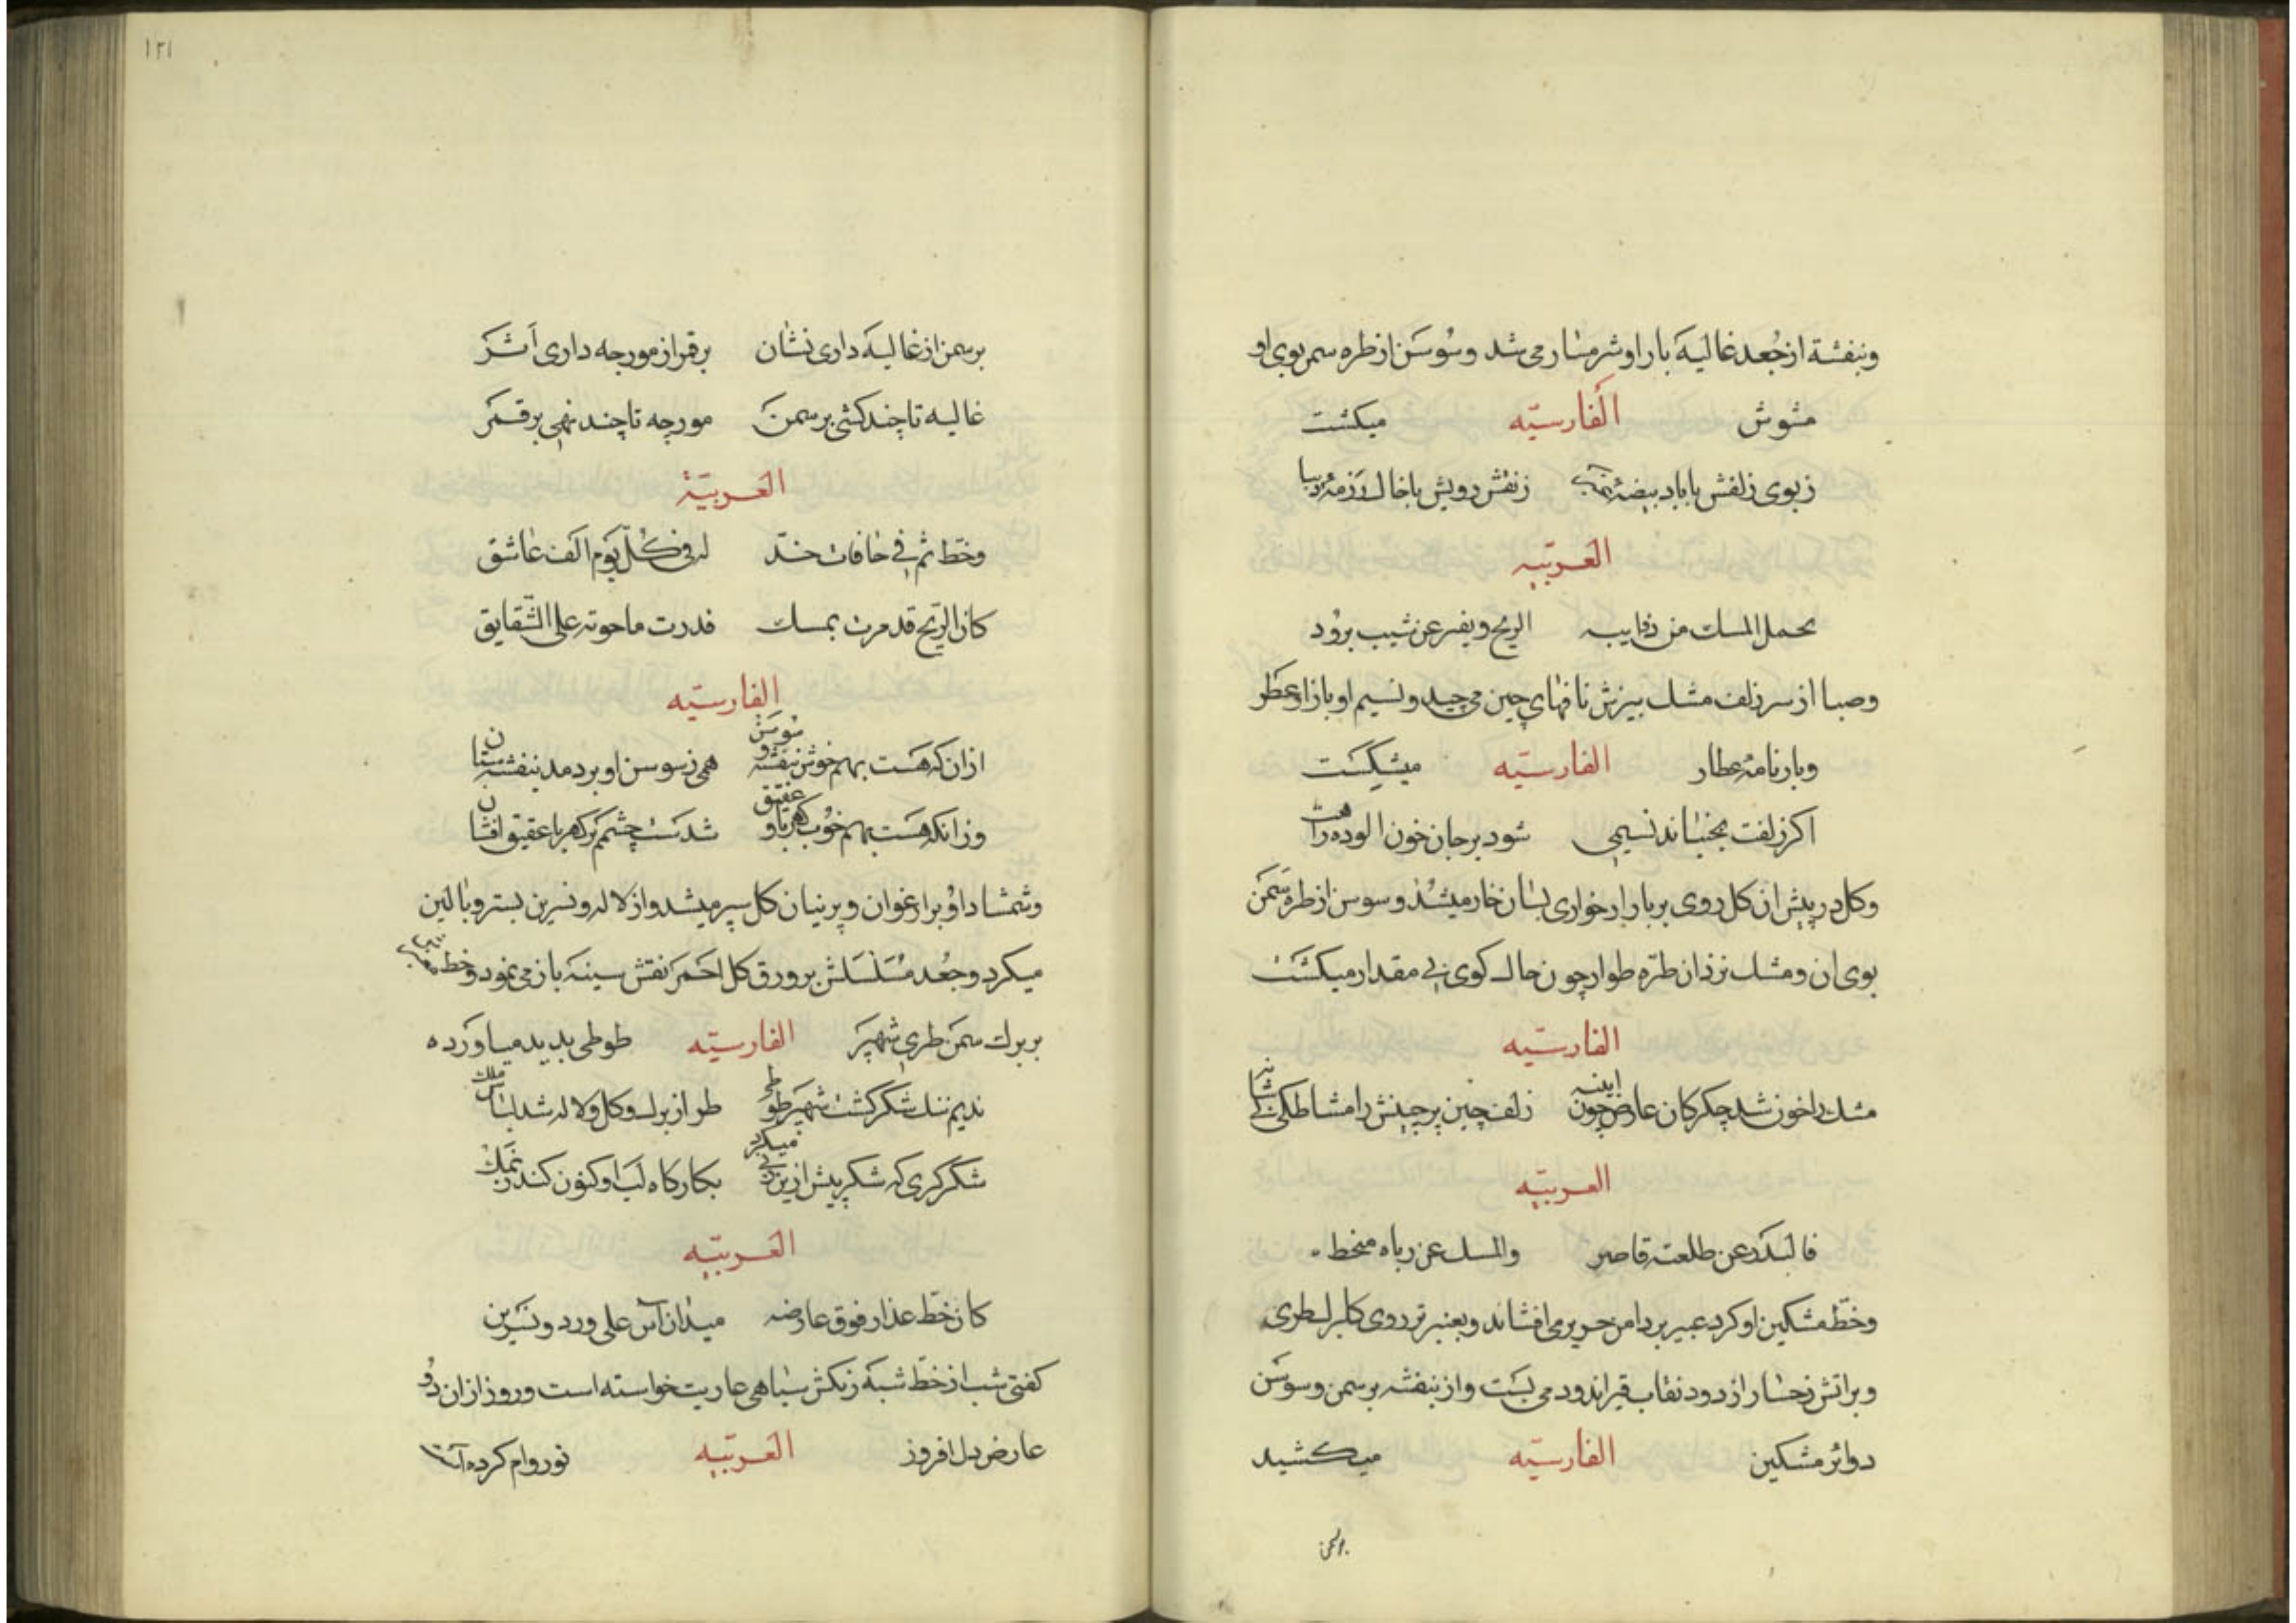 وبنفشة از جُعد غالیهٔ بار او شرمسار می شد وسُوسَن از طره سمن بوی او
مشوش الفارسیّه میکشت
زبوی زلفش با باد بیضهٔ زنقش رویش با خاک رزمهٔ دیبا
العربیّه
یحمل المسک من الریح ویفتر عن شیب برود
وصبا از سر زلف مشک بیزش نافهای چین می چید ونسیم او بازار عطر
وبار نامهٔ عطار الفارسیّه میشکست
اکر زلفت بجنباند نسیمی شود بر جان خون الوده راهت
وکل در پیش ان کل روی بر بار از خواری بسان خار میشد وسوسن از طره سَمَن
بوی ان ومشک نزد ان طرّه طرار چون خاک کوی بی مقدار میکشت
الفارسیّه
مشک را خون شد جکر کان عارض چون اینه زلف چین پر چینش را مشاطکی
العربیّه
فالبَدْر عن طلعته قاصر والمسک عن ریاه منحط
وخطّ مشکین او کرد عبیر بر دامن حریر می افشاند وبعنبر تر روی کلبرک طری
وبر اتش رخسار از دود نقاب قیر اندود می بست واز بنفشه بر سمن وسوسَن
دوائر مشکین الفارسیّه میکشید
بر سمن
۱۲۱
بر سمن از غالیهَ داری نشان بر قمر از مورجه داری اَثر
غالیه تا چند کشی بر سمن مورجه تا چند نهی بر قمر
العَربیّة
وخطّ ثم فی حافات خدّ له فی کلّ یوم الف عاشق
کان الرّیح قد مرت بمسک فدرت ما حوته علی الشّقایق
الفارسیّه
ازان که هست بهم خوش بنفشه و سُوسَن همی ز سوسن او بر دمد بنفشه ستان
وزانکه هست بهم خوب کهربا و عقیق شدست چشمم بر کهربا عقیق افشان
وشمشاد او بر ارغوان وپرنیان کل سپر میشد واز لاله ونسرین بستر وبالین
میکرد وجُعد مُسَلسَلش بر ورق کل احمَر نقش سینهَ باز می نمود وخط
بر برک سمن طری شهپر الفارسیّه طوطی پدید میاورد
ندیم تنک شکر کشت شهپَر طوطی طراز برک وکل ولاله شد لباس ملک
شکر کری که شکر پیش ازین میکرد بکارکاه لب او کنون کند نمک
العَربیّه
کان خطّ عذار فوق عارضه میدان آس علی ورد ونسرین
کفتی شب از خطّ شبهَ رنکش سیاهی عاریت خواسته است وروز ازان دو
عارض دل افروز العَربیّه نور وام کرده است